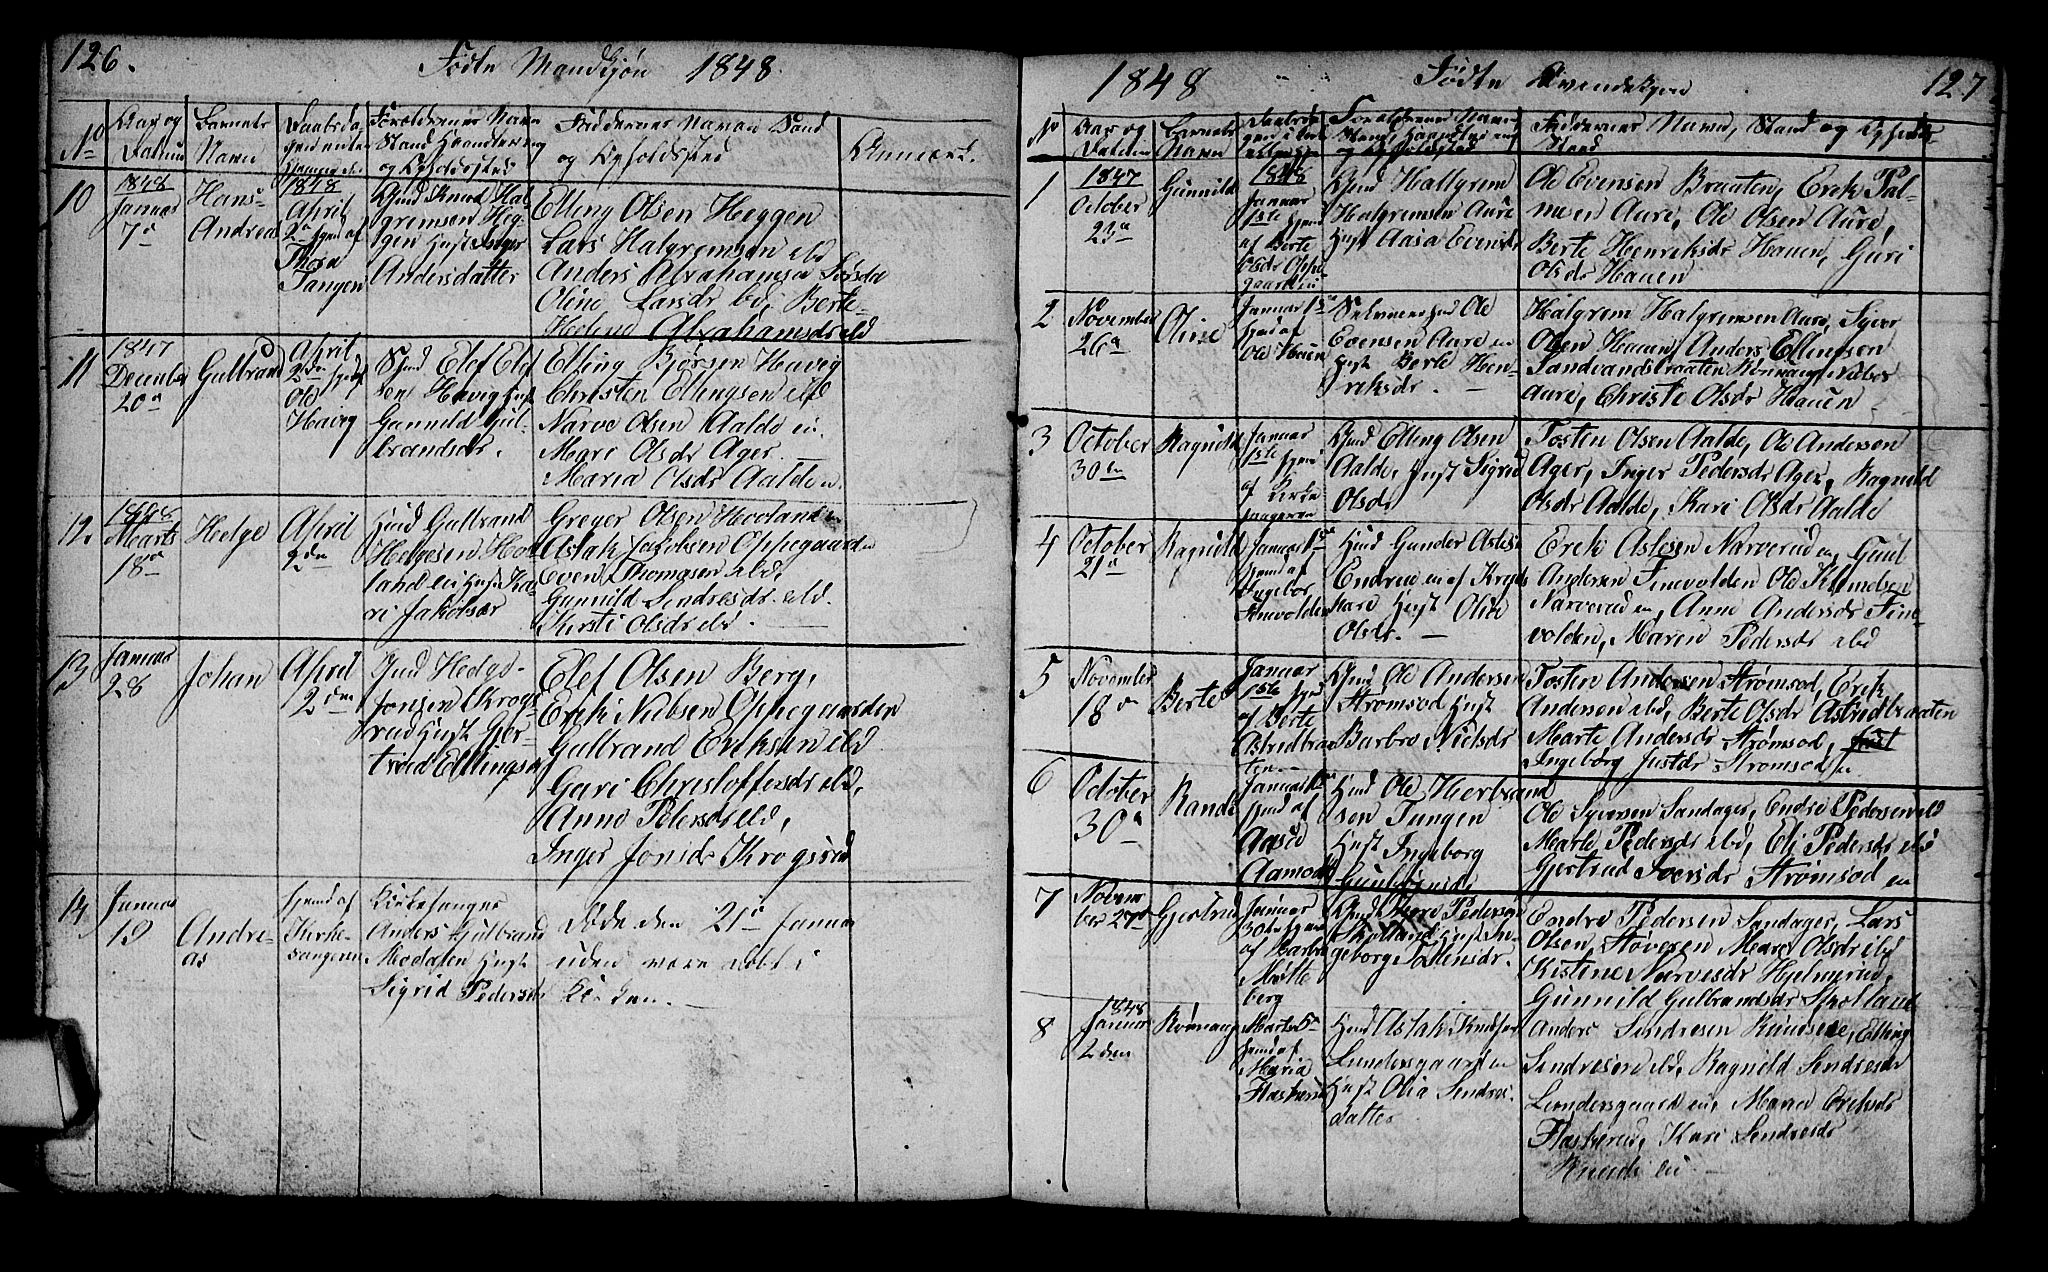 126.
Födte Mandkjön 1848.
No
Aar og Datum
Barnets Navn
Forældrenes Navn Stand Haandtering og Opholdssted
Faddernes Navn Stand og Opholdsted
Anmærk.
10
1848 Januar 7de
Hans Andrea
1848 April 2den hjem af Thora Tangen
Gmd Knud Halgremsen Heggen Hust Inger Andersdatter
Elling Olsen Heggen
Lars Halgremsen ibd
Anders Abrahamsen
Oline Larsdr ibd, Berte
Helene Abrahamsdr ibd
11
1847 December 20de
Gulbrand
April 2den hjemd af Ole Havig
Gmd Elef Elefsen Havig Hust Gunnild Gulbrandsdr.
Elling Bjørsen Havig
Christen Ellingsen ibd
Narve Olsen Aalde ei.
Mari Olsdr Ager. —
Maria Olsdr Aalde
12.
1848 Marts 18de
Helge
April 2den
Gmd Gulbrand Helgesen Hovland ei Hust Kari Jakobsdr
Greger Olsen Hovland
Aslak Jakobsen Oppegaarden
Even Thomasen ibd,
Gunnild Sendresdr ibd.
Kersti Olsdr ibd. —
13
Januar 28
Johan
April 2den
Gmd Helge Jonsen Krogsrud Hust Gertrud Ellingsdr
Elef Olsen Berg,
Erik Nielsen Oppegaarden
Gulbrand Eriksen ibd
Guri Christoffersdr ibd,
Anne Pedersdr ibd,
Inger Jonsdr Krogsrud
14
Januar 19
Andreas
hjemd af Kirkesangeren
Kirkesanger Anders Gulbrandsen Modalen Hust Sigrid Pedersdr
Døde den 21de Januar
uden være døbt i
Kirken. —
1848
Födte Kvendekjøn
127
No
Aar og Datum
Barnets Navn
Faddernes Navn, Stand og Opholdssted
1
1847 October 23de
Gunnild
1848 Januar 1ste hjemd af Berte Olsdr Oppegaarden
Gmd Halgrem Halgremsen Aure Hust Aasa Evensdr
Ole Evensen Braaten, Erik Palmesen Aure, Ole Olsen Aure,
Berte Henriksdr Hauen, Guri
Olsdr Hauen
2
November 26de
Oline
Januar 1ste hjemd af Ole Hauen
Ole Evensen Aure Hust Berte Henriksdr. —
Halgrem Halgremsen Aure, Syver
Olsen Hauen, Anders Ellingsen
Sandvandsbraaten Rönnaug Nielsdr
Aure, Christi Olsdr Hauen
3
October 30te
Ragnild
Januar 1ste hjemd af
Gmd Elling Olsen Aalde, Hust Sigrid Olsdr
Tosten Olsen Aalde, Ole Andersen
Ager, Inger Pedersdr Ager, Ragnild
Olsdr Aalde, Kari Olsdr Aalde
4
October 21de
Ragnild
Januar 1ste hjemd af Ingebor Finevolden
Gmd Gunder Aslesen Hust Oline Olsdr. —
Erik Aslesen Narverud ei, Gul
Andersen Finevolden Ole Klemetsen
Narverud ei, Anne Andersdr Finevolden, Maren Pedersdr ibd
5
November 18de
Berte
Januar 1ste hjemd af Berte Astridbraaten. —
Gmd Ole Andersen Strömsod Hust Barbro Nielsdr
Tosten Andersen Strömsod, Erik
Andersen ibd, Berte Olsdr Astridbraaten
Marte Andersdr Strömsod,
Ingeborg Justdr Strömsod,
6
October 30te
Randi
Januar 1ste hjemd af Aasud Aamodt
Gmd Ole Herbrandsen Tangen Hust Ingeborg Gunbjønsdr
Ole Syversen Sandager, Endre Pedersen ibd
Marte Pedersdr ibd, Eli Pedersdr ibd
Gjertrud Iversdr Strömsod
7
November 27de
Gjertrud
Januar 30te hjem af Barbro Mölleberg
Gmd Thore Pedersen Skolland Hust Ingeborg
Endre Pedersen Sandager, Lars
Olsen Støveren Mari Olsdr ibd
Kistine Narvesdr Hjelmerud,
Gunnild Gulbrandsdr Skolland
8
1848 Januar 2den
Rönnaug
Marts hjemd af Maria Flaskerud
Gmd Aslak Knudsen Lundersgaard Hust Olia Sendresdatter
Anders Sendresen, Elling
Sendresen ibd, Ragnild Sendresdr
Lundersgaard ei, Maria Eriksdr
Flaskerud, Kari Sendresdr